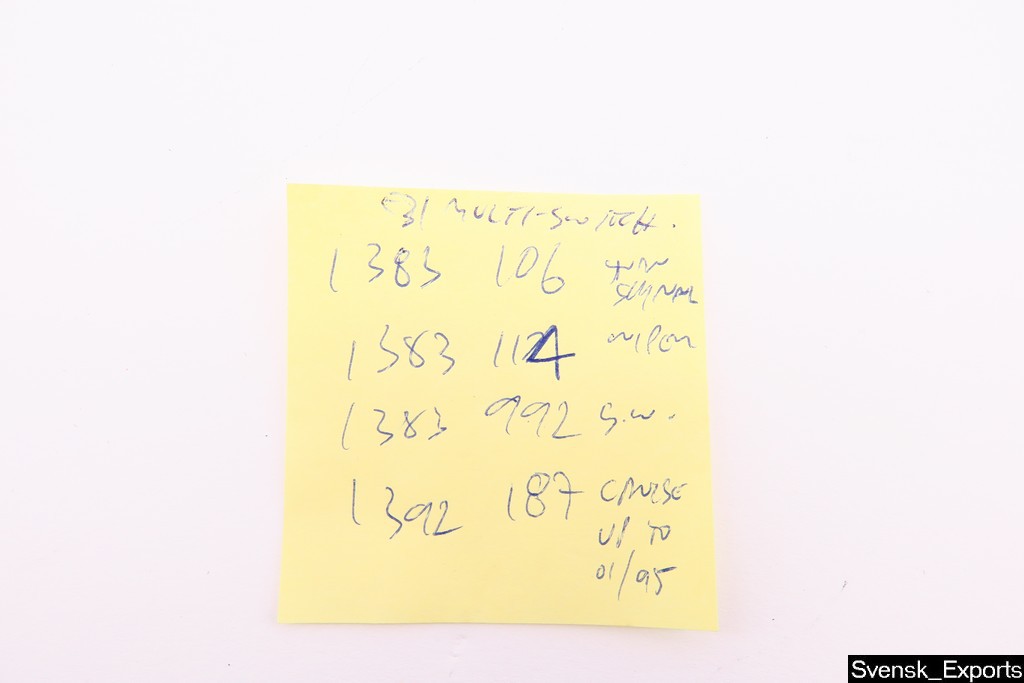 E31 MULTI-SWITCH.
1383 106 TURN
SIGNAL
1383 114 WIPER
1383 992 S.W.
1392 187 CRUISE
UP TO
01/95
Svensk_Exports